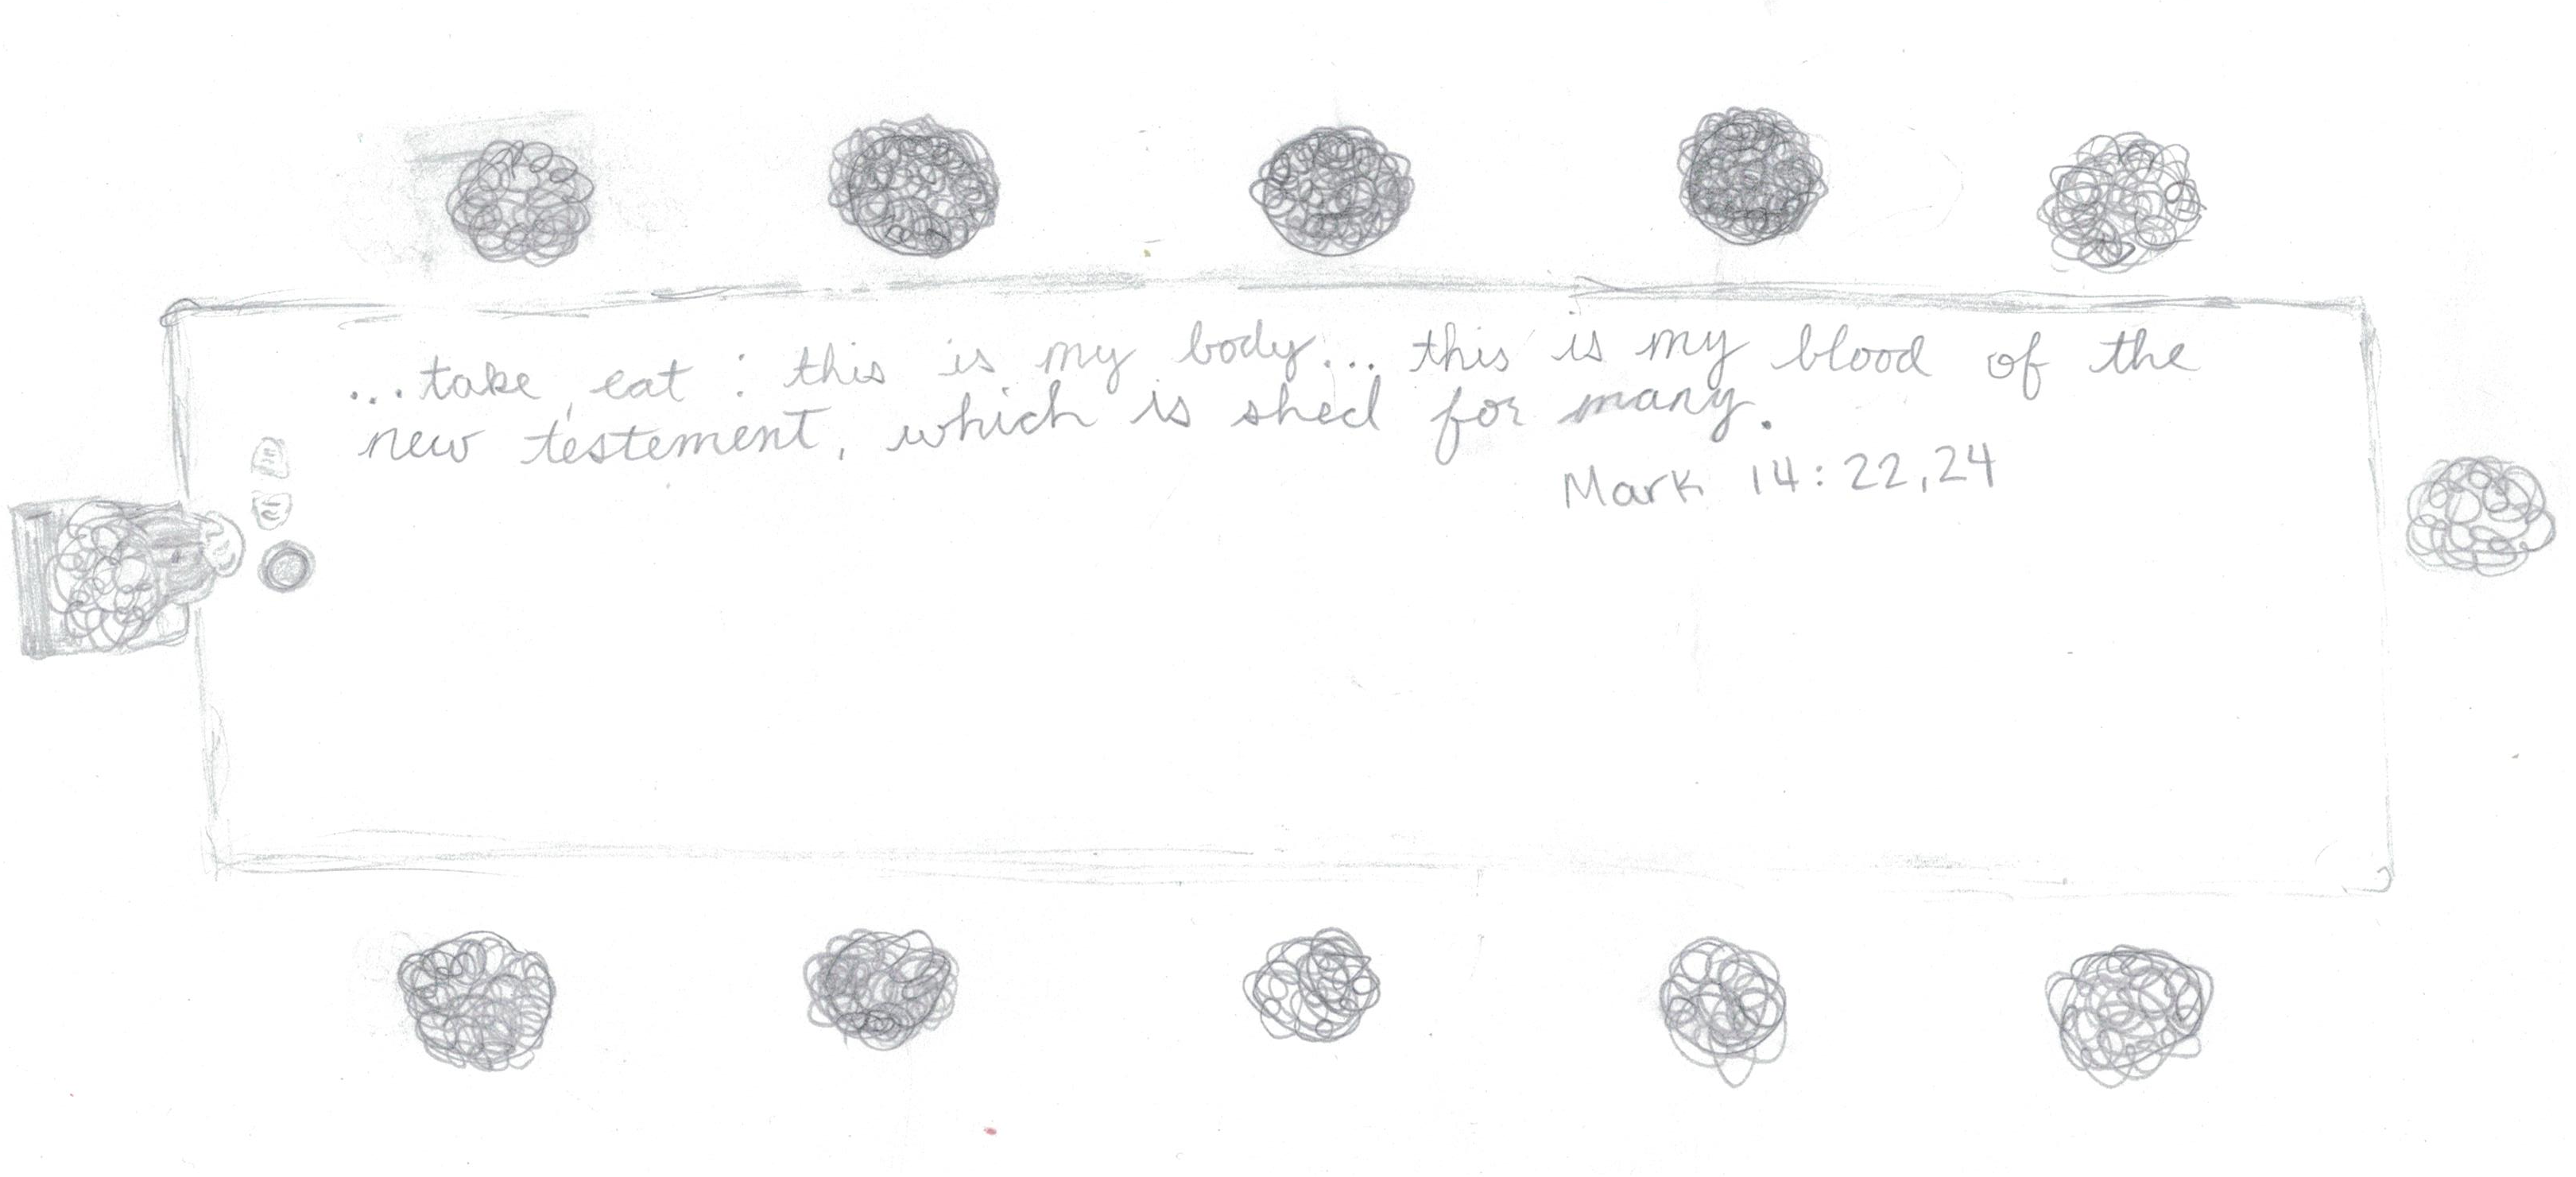 ...take, eat : this is my body... this is my blood of the
new testement, which is shed for many.
Mark 14:22,24